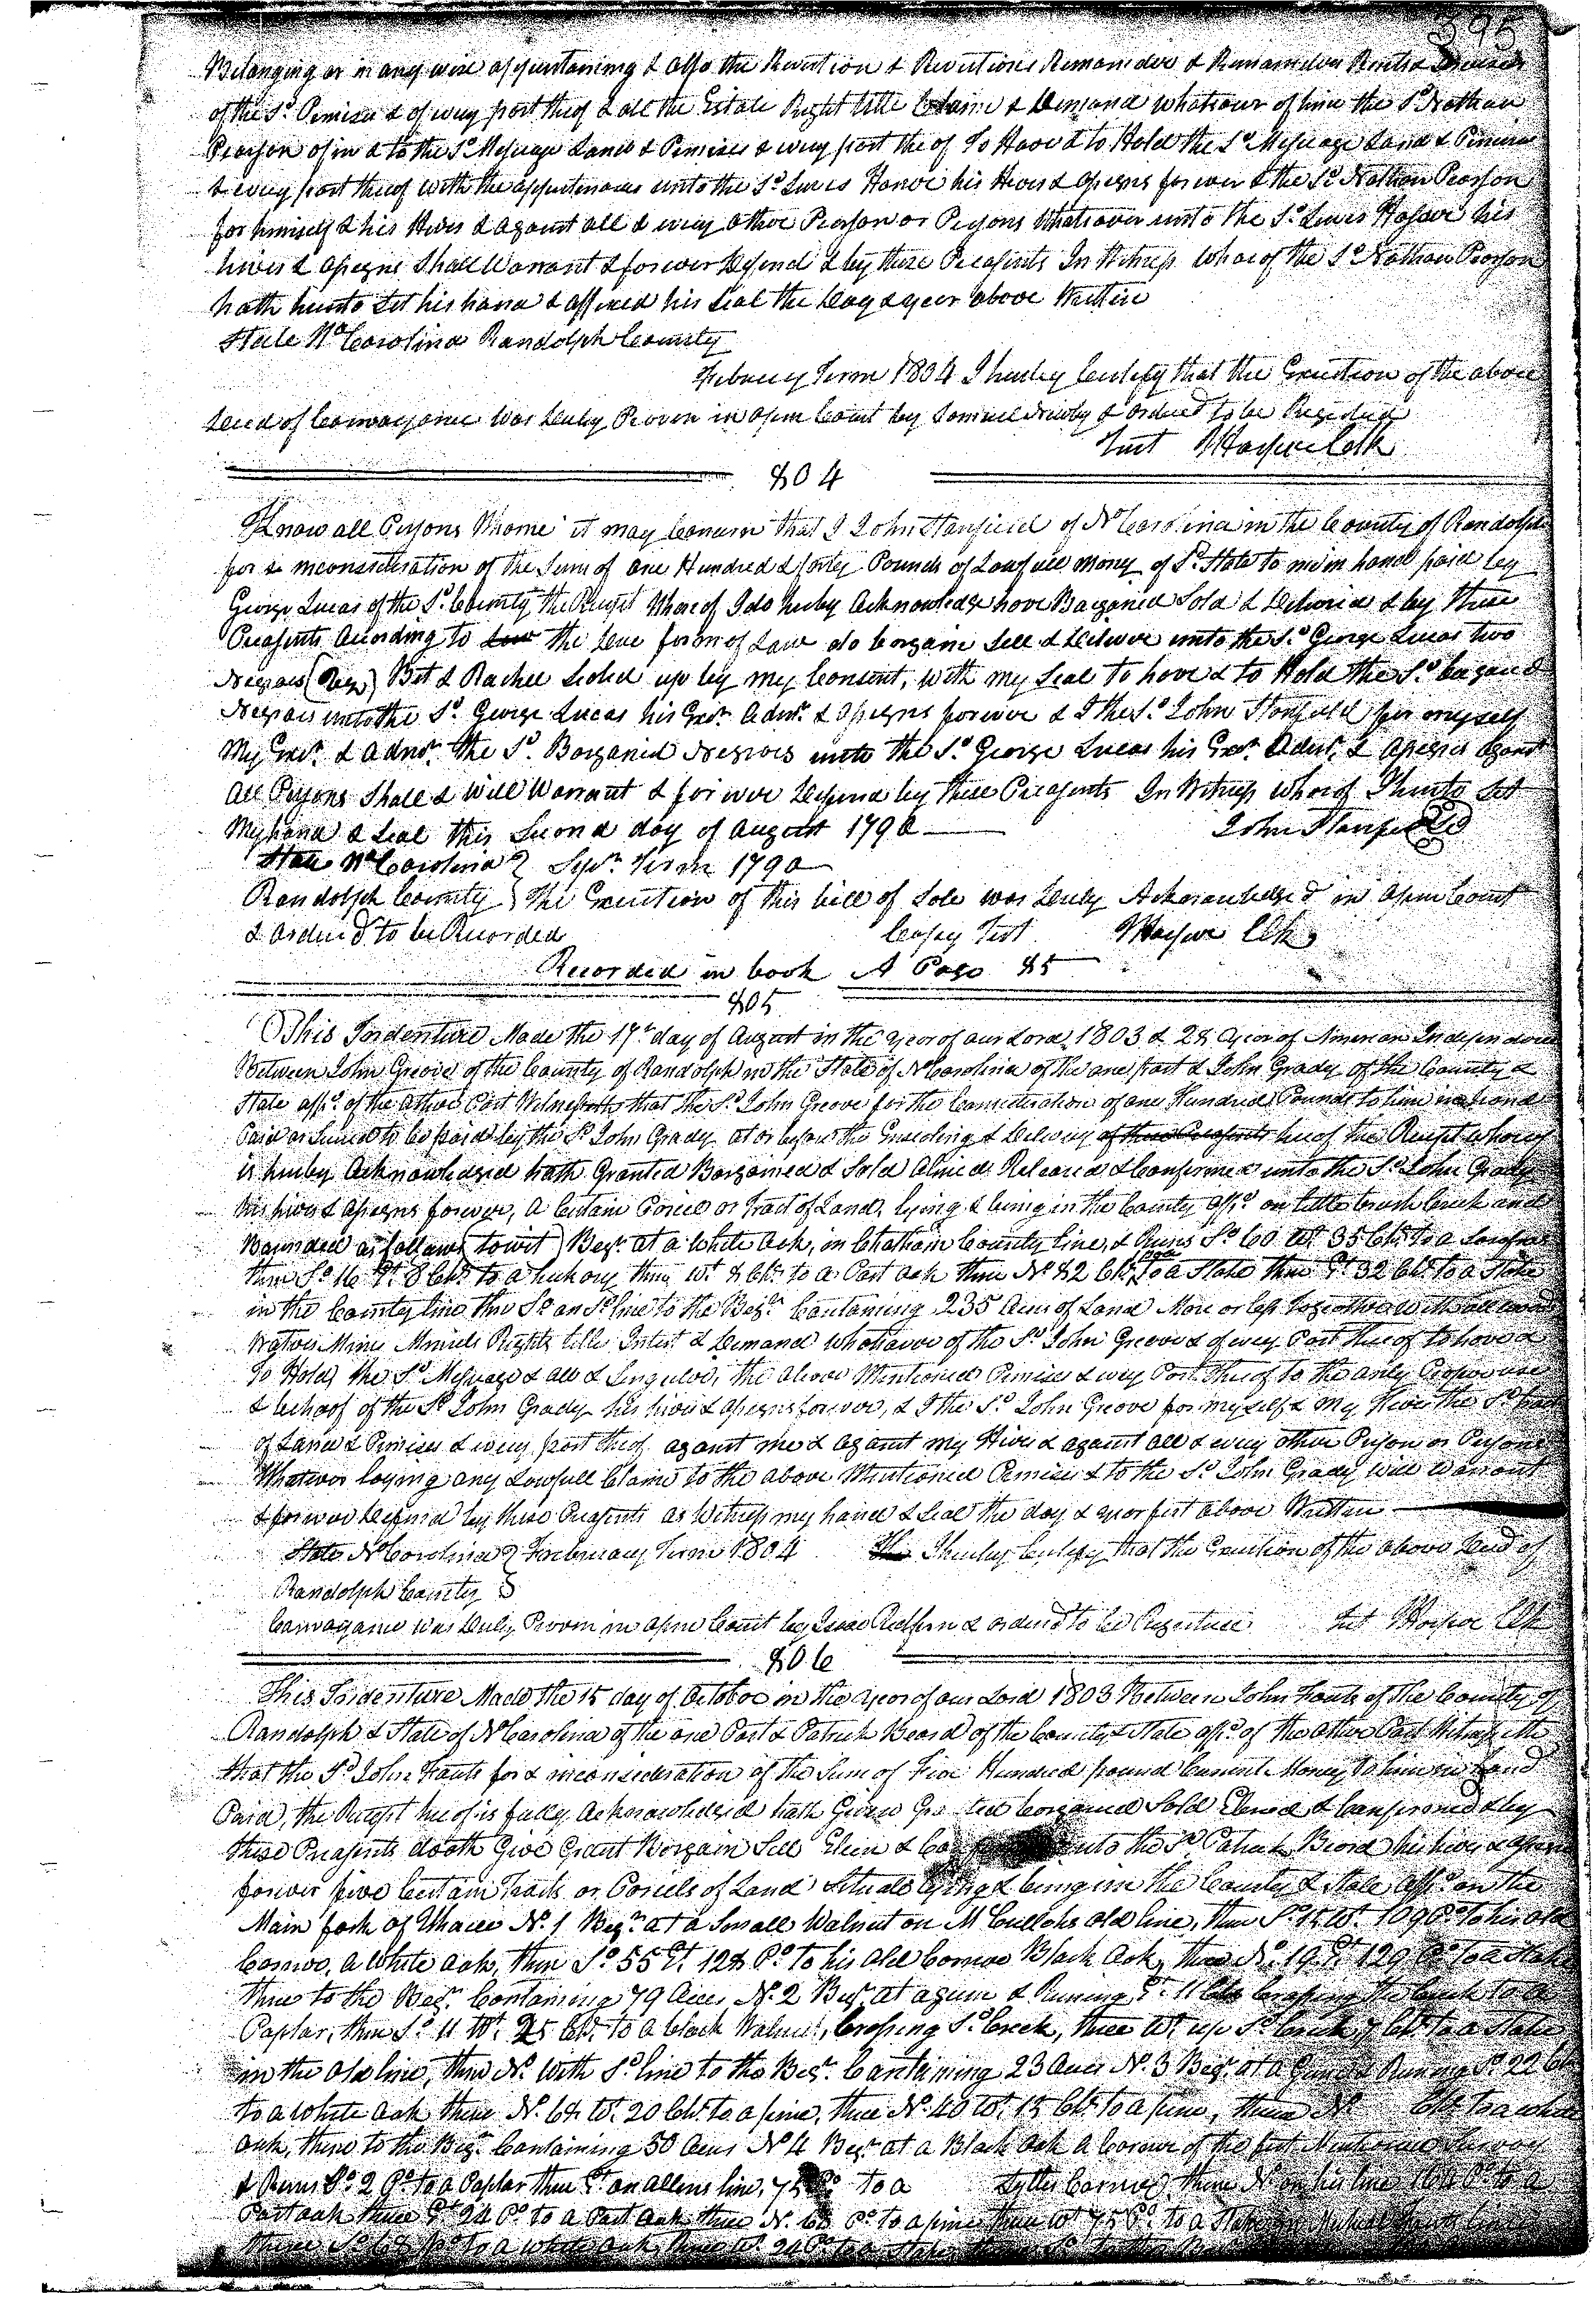 395
Belonging or in any wise appurtaining & also the Revertion & Revertions Remainder & Remainders Rents &
of the Sd. Premises & of every part thereof & all the Estate Right title Claim & Demand whatsoever of him the Sd Nathan
Pearson of in & to the Sd Messuage Land & Premises & every part thereof To Have & to Hold the Sd Messuage Land & Premises
& every part thereof with the appurtenances unto the Sd. Lewis his Heirs & assigns forever & the Sd Nathan Pearson
for himself & his Heirs & against all & every other Person or Persons Whatsoever unto the Sd. Lewis his
heirs & assigns Shall Warrant & forever Defend & by these Preasents In Witness whareof the Sd Nathan Pearson
hath hereunto Set his hand & affixed his Seal the day & year above Written
State No Carolina Randolph County
February Term 1804 I hereby Certify that the Execution of the above
Deed of Convayance Was Duly Proven in open Court by Samuel & orderd to be Registerd
Test JHarper Clk
804
Know all Persons Whome it may Concern that I John Stanfield of No Carolina in the County of Randolph
for & inconsideration of the Sum of one Hundred & forty Pounds of Lawfull mony of Sd. State to me in hand paid by
George Lucas of the Sd. County the Receipt Whareof I do hereby Acknowledge have Bargained Sold & Deliverd & by these
Preasents according to Law the due form of Law do bargain Sell & Deliver unto the Sd George Lucas two
Negroes (viz) Bet & Rachel Seled up by my Consent, with my Seal To have & to Hold the Sd bargand
Negroes unto the Sd. George Lucas his Exrs. Admrs. & assigns forever & I the Sd. John Stanfield for myself
My Exrs. & admrs. the Sd. Bargained Negroes unto the Sd. George Lucas his Exrs. Admrs. & assigns against
all Persons Shall & will Warrant & forever Defend by these Preasents In Witness whareof I hereunto Set
My hand & Seal this Second day of August 1790 John Stanfield
State No Carolina } Sepr. Term 1790
Randolph County } The Execution of this bill of Sale was Duly Acknowledged in open Court
& orderd to be Recorded Copey Test JHarper Clk
Recorded in book A Page 85
805
This Indenture Made the 17th day of August in the year of our Lord 1803 & 28 year of American Independance
Between John Groove of the County of Randolph in the State of No Carolina of the one part & John Grady of the County &
State affd. of the other Part Witnesseth that the Sd. John Groove for the Consideration of one Hundred Pounds to him in hand
Paid or Secured to be paid by the Sd John Grady at or before the Ensealing & Delivery of these Preasents hereof the Receipt whareof
is hereby Acknowledged hath Granted Bargained & Sold Aliend Released & Confirmed unto the Sd. John Grady
his heirs & assigns forever, a Certain Parcel or Tract of Land, lying & being in the County affd on little brush Creek and
Bounded as follows (towit) Begn. at a White Oak, in Chatham County line, & Runs So 60 Wt. 35 Chs. to a
then So 16 Et. 8 Chs. to a hickory then Wt. 8 Chs. to a Post oak then No 82 Chs. to a Stake then Et. 32 Chs. to a Stake
in the County line then So on Sd line to the Begn. Containing 235 Acres of Land More or less Together with all woods
Waters Mines Minerals Rights title Intrest & Demand whatsoever of the Sd John Groove & of every Part thereof to have &
To Hold, the Sd. Messuage & all & Singuler, the above Mentioned Premises & every Part thereof to the only Proper use
& behoof of the Sd John Grady his heirs & assigns forever, & I the Sd. John Groove for myself & my Heirs the Sd tract
of Land & Premises & every part thereof against me & against my Heirs & against all & every other Person or Persons
Whatever laying any Lawfull Claim to the above Mentioned Premises & to the Sd John Grady will Warrant
& forever Defend by these Preasents as Witness my hand & Seal the day & year first above Written
State No Carolina } February Term 1804 I hereby Certify that the Execution of the above Deed of
Randolph County }
Convayance was Duly Proven in open Court by Isaac & orderd to be Registerd Test JHarper Clk
806
This Indenture Made the 15 day of October in the year of our Lord 1803 Between John Fouts of the County of
Randolph & State of No Carolina of the one Part & Patrick Beard of the County & State affd. of the other Part Witnesseth
that the Sd John Fouts for & inconsideration of the Sum of Five Hundred pound Current Money to him in hand
Paid, the Receipt hereof is fully Acknowledged hath Given Gra ted bargained Sold Eliend & Confirmed & by
these Preasents dooth Give Grant Bargain Sell Elien & Co unto the Sd. Patrick Beard his heirs & assigns
forever five Certain Tracts or Parcels of Land Situate lying & being in the County & State affd on the
Main fork of Uharee No. 1 Begn. at a Small Walnut on McCullohs old line, then So 15 Wt. 109 Po. to his old
Corner, a White oak, then So. 55 Et. 128 Po. to his old Corner Black oak, then No. 19 Et. 129 Po to a Stake
then to the Begn. Containing 79 acres No. 2 Begn. at a gum & Runing Et. 11 Chs Crossing the Creek to a
Poplar, then So. 11 Wt. 25 Chs. to a black Walnut, Crossing Sd. Creek, thence Wt. up Sd. Creek 7 Chs to a Stake
in the old line, then No. with Sd. line to the Begn. Containing 23 acres No. 3 Begn. at a Gum & Runing So. 22 Chs
to a white oak thence No. 68 Wt. 20 Chs. to a pine, thence No. 40 Wt. 15 Chs. to a pine, thence No Chs. to a white
oak, thence to the Begn. Containing 50 acres No 4 Begn. at a Black oak a Corner of the first Mentioned Survey
& Runs So. 2 Po. to a Poplar then Et. on allens line, 75 Po. to a Corner, then No. on his line 164 Po to a
Post oak thence Et. 24 Po. to a Post oak thence No. 68 Po. to a pine then Wt. 75 Po. to a Stake
thence So. 68 Po. to a white oak thence Wt. 24 Po. to a Stake